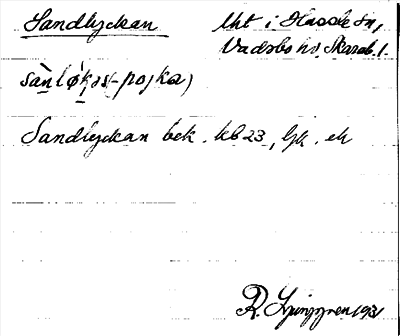 Sandlyckan
lht i Hassle sn,
Vadsbo hd, Skarab. l.
sànløk̡əs(-pojka)
Sandlyckan bek. kb 23, ljk. ek
R. Ljunggren 1931